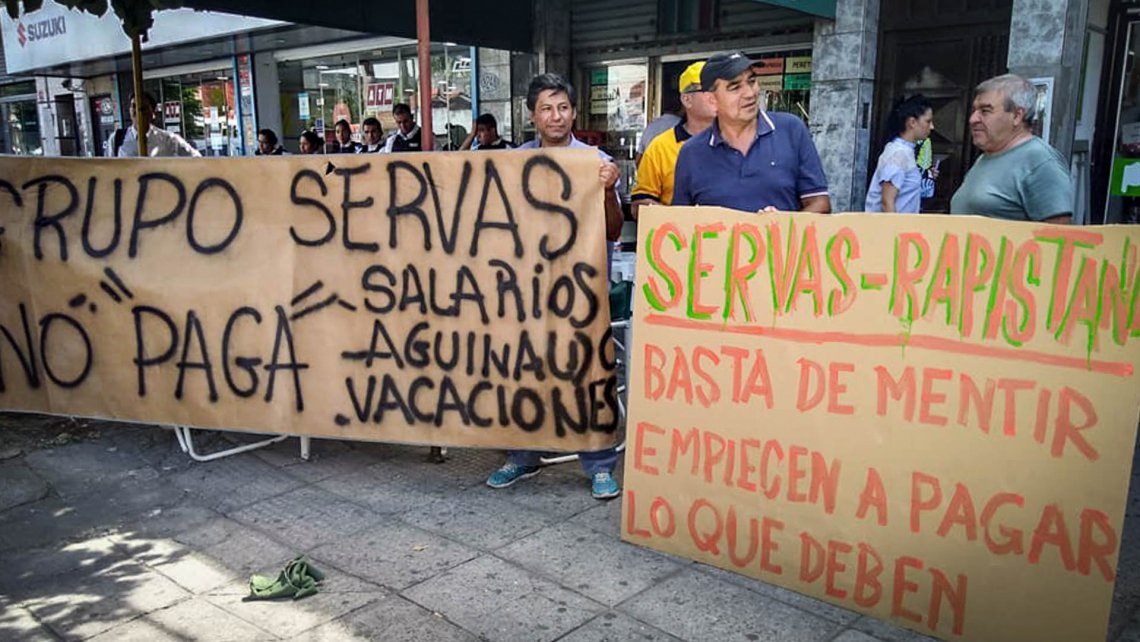 SUZUKI
GRUPO SERVAS
"NO" PAGA"
-SALARIOS
-AGUINALDO
.VACACIONES
SERVAS-RAPISTAN
BASTA DE MENTIR
EMPIECEN A PAGAR
LO QUE DEBEN